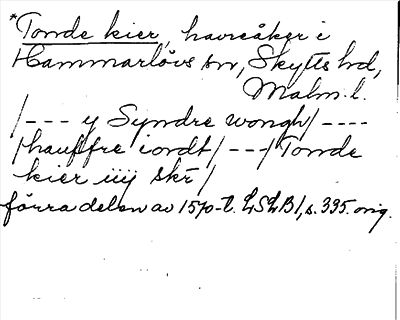 *Tonde kier, havreåker i
Hammarlövs sn, Skytts hd,
Malm. l.
/--- y Syndre wongh/----
/hauffre iordt/---/Tonde
kier iiij skr/
förra delen av 1570-t. LSLB1, s. 395. orig.